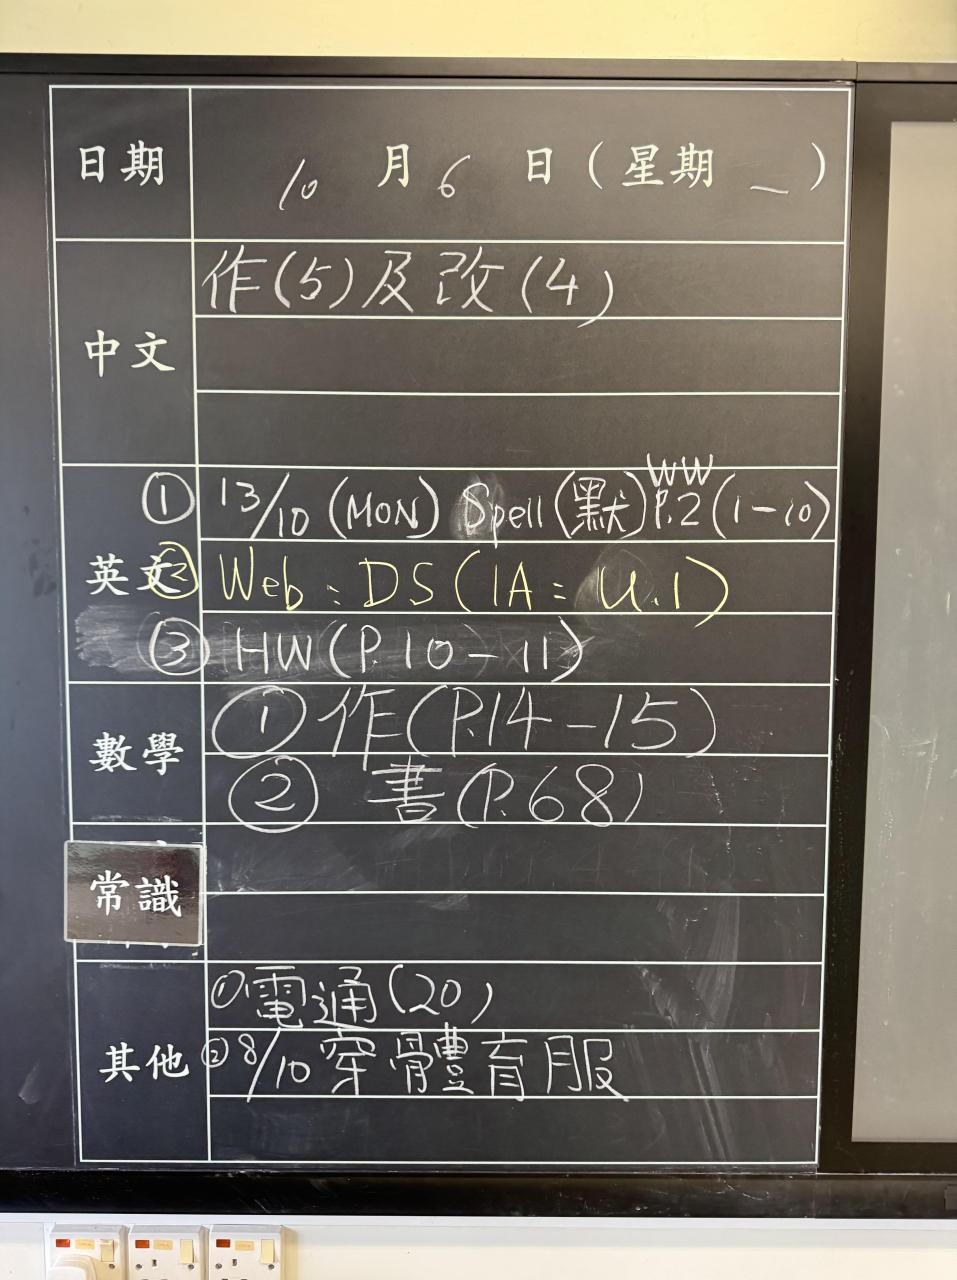 日期 10 月 6 日 ( 星期 一 )
中文
作(5)及改(4)
英文
① 13/10 (MON) Spell (默) WW P.2 (1-10)
② Web : DS (1A : U.1)
③ HW (P.10-11)
數學
① 作(P.14-15)
② 書(P.68)
常識
其他
① 電通(20)
② 8/10 穿體育服